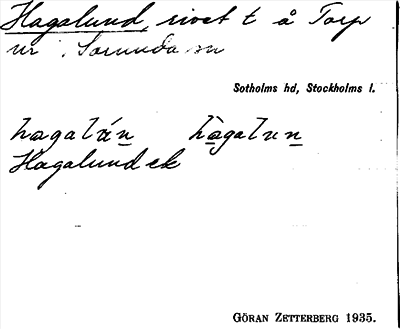 Hagalund, rivet t å Torp
ur Sorunda sn
Sotholms hd, Stockholms l.
hagalán hàgalun
Hagalund ek
GÖRAN ZETTERBERG 1935.